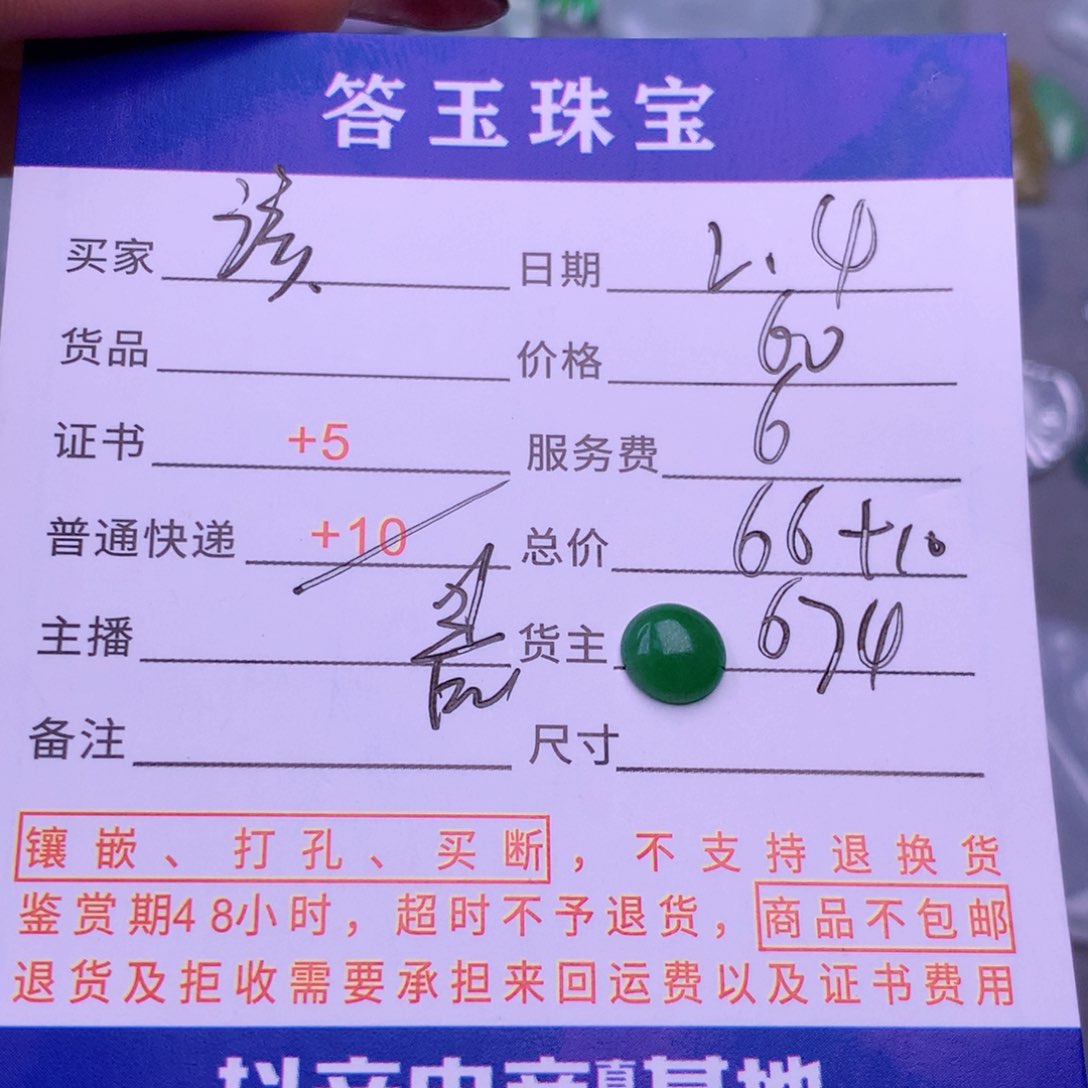 答玉珠宝
买家 日期 2.4
货品 价格 60
证书 +5 服务费 6
普通快递 +10 总价 66+10
主播 货主 674
备注 尺寸
镶嵌、打孔、买断，不支持退换货
鉴赏期48小时，超时不予退货，商品不包邮
退货及拒收需要承担来回运费以及证书费用
基地